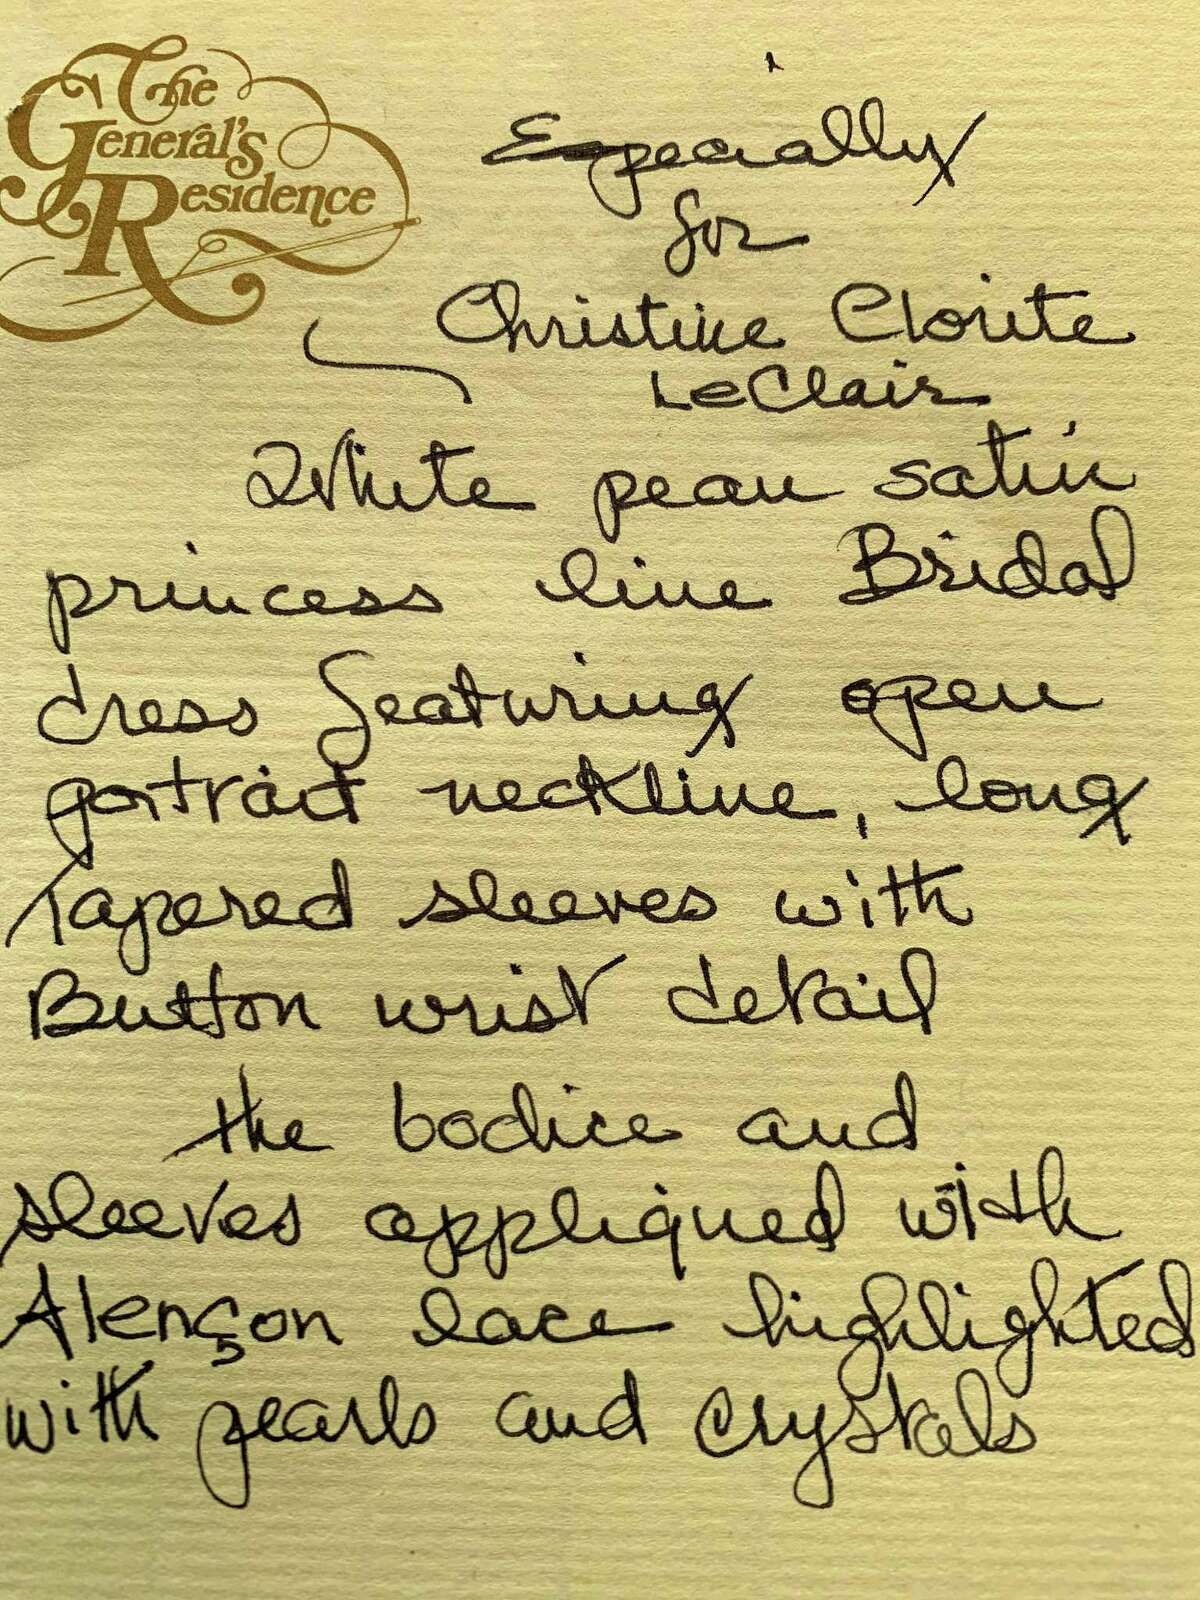 The
General's
Residence
Especially
for
Christine Clorite
LeClair
White peau satin
princess line Bridal
dress featuring open
portrait neckline, long
Tapered sleeves with
Button wrist detail
the bodice and
sleeves appliqued with
Alençon lace highlighted
with pearls and crystals